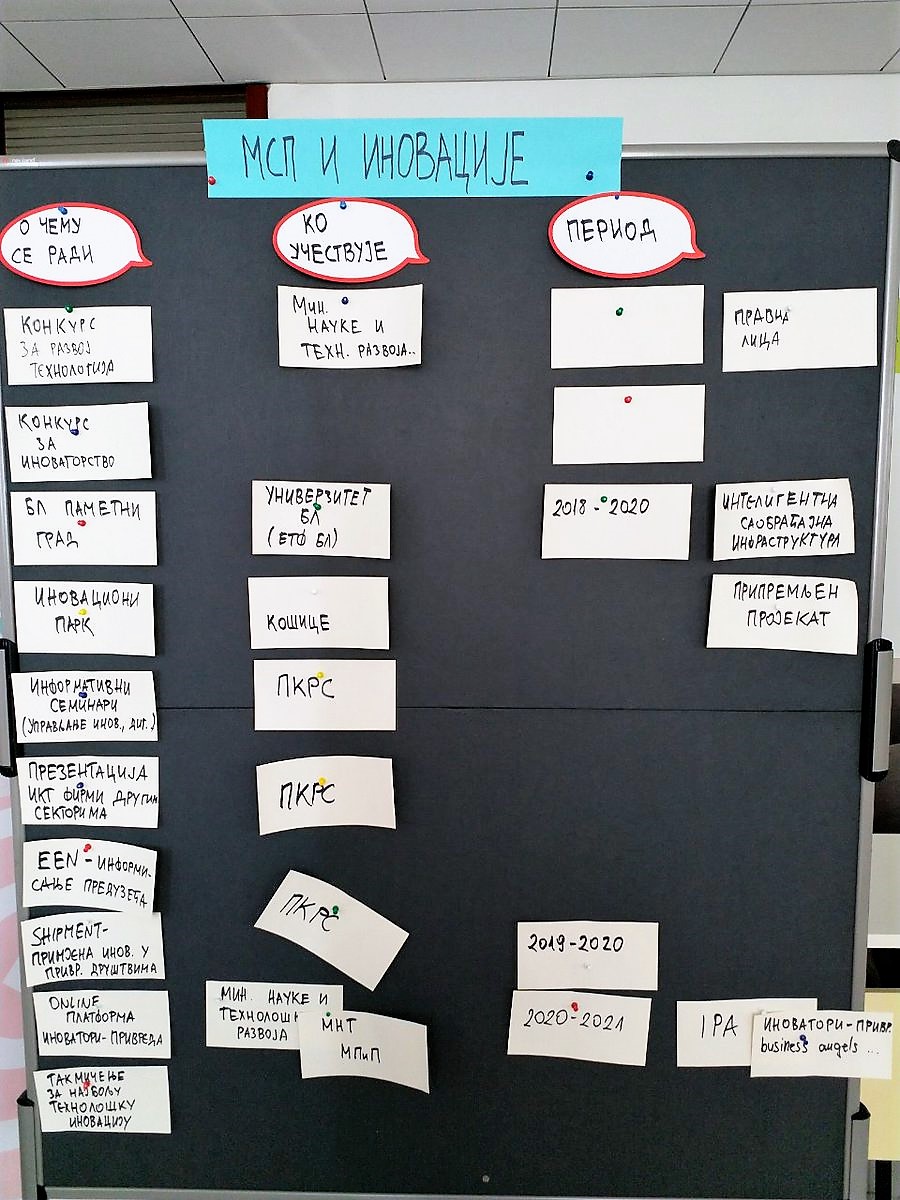 МСП И ИНОВАЦИЈЕ
О ЧЕМУ
СЕ РАДИ
КО
УЧЕСТВУЈЕ
ПЕРИОД
КОНКУРС
ЗА РАЗВОЈ
ТЕХНОЛОГИЈА
Мин.
НАУКЕ И
ТЕХН. РАЗВОЈА..
ПРАВНА
ЛИЦА
КОНКУРС
ЗА
ИНОВАТОРСТВО
БЛ ПАМЕТНИ
ГРАД
УНИВЕРЗИТЕТ
БЛ
(ЕТФ БЛ)
2018 - 2020
ИНТЕЛИГЕНТНА
САОБРАЋАЈНА
ИНФРАСТРУКТУРА
ИНОВАЦИОНИ
ПАРК
КОШИЦЕ
ПРИПРЕМЉЕН
ПРОЈЕКАТ
ИНФОРМАТИВНИ
СЕМИНАРИ
(УПРАВЉАЊЕ ИНОВ., ДИГ.)
ПКРС
ПРЕЗЕНТАЦИЈА
ИКТ ФИРМИ ДРУГИМ
СЕКТОРИМА
ПКРС
EEN - ИНФОРМИ-
САЊЕ ПРЕДУЗЕЋА
ПКРС
SHIPMENT-
ПРИМЈЕНА ИНОВ. У
ПРИВР. ДРУШТВИМА
2019-2020
ONLINE
ПЛАТФОРМА
ИНОВАТОРИ-ПРИВРЕДА
МИН. НАУКЕ И
ТЕХНОЛОШК
РАЗВОЈА
МНТ
МПиП
2020-2021
IPA
ИНОВАТОРИ-ПРИВР.
business angels ...
ТАКМИЧЕЊЕ
ЗА НАЈБОЉУ
ТЕХНОЛОШКУ
ИНОВАЦИЈУ